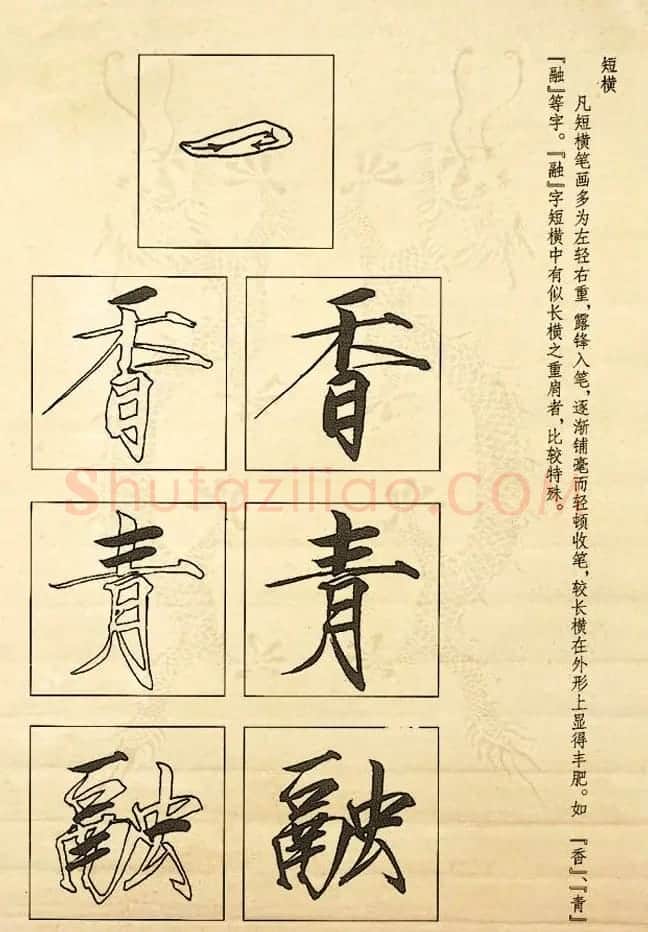 短横
凡短横笔画多为左轻右重，露锋入笔，逐渐铺毫而轻顿收笔，较长横在外形上显得丰肥。如『香』、『青』
『融』等字。『融』字短横中有似长横之重肩者，比较特殊。
香 香
青 青
融 融
Shufaziliao.COM